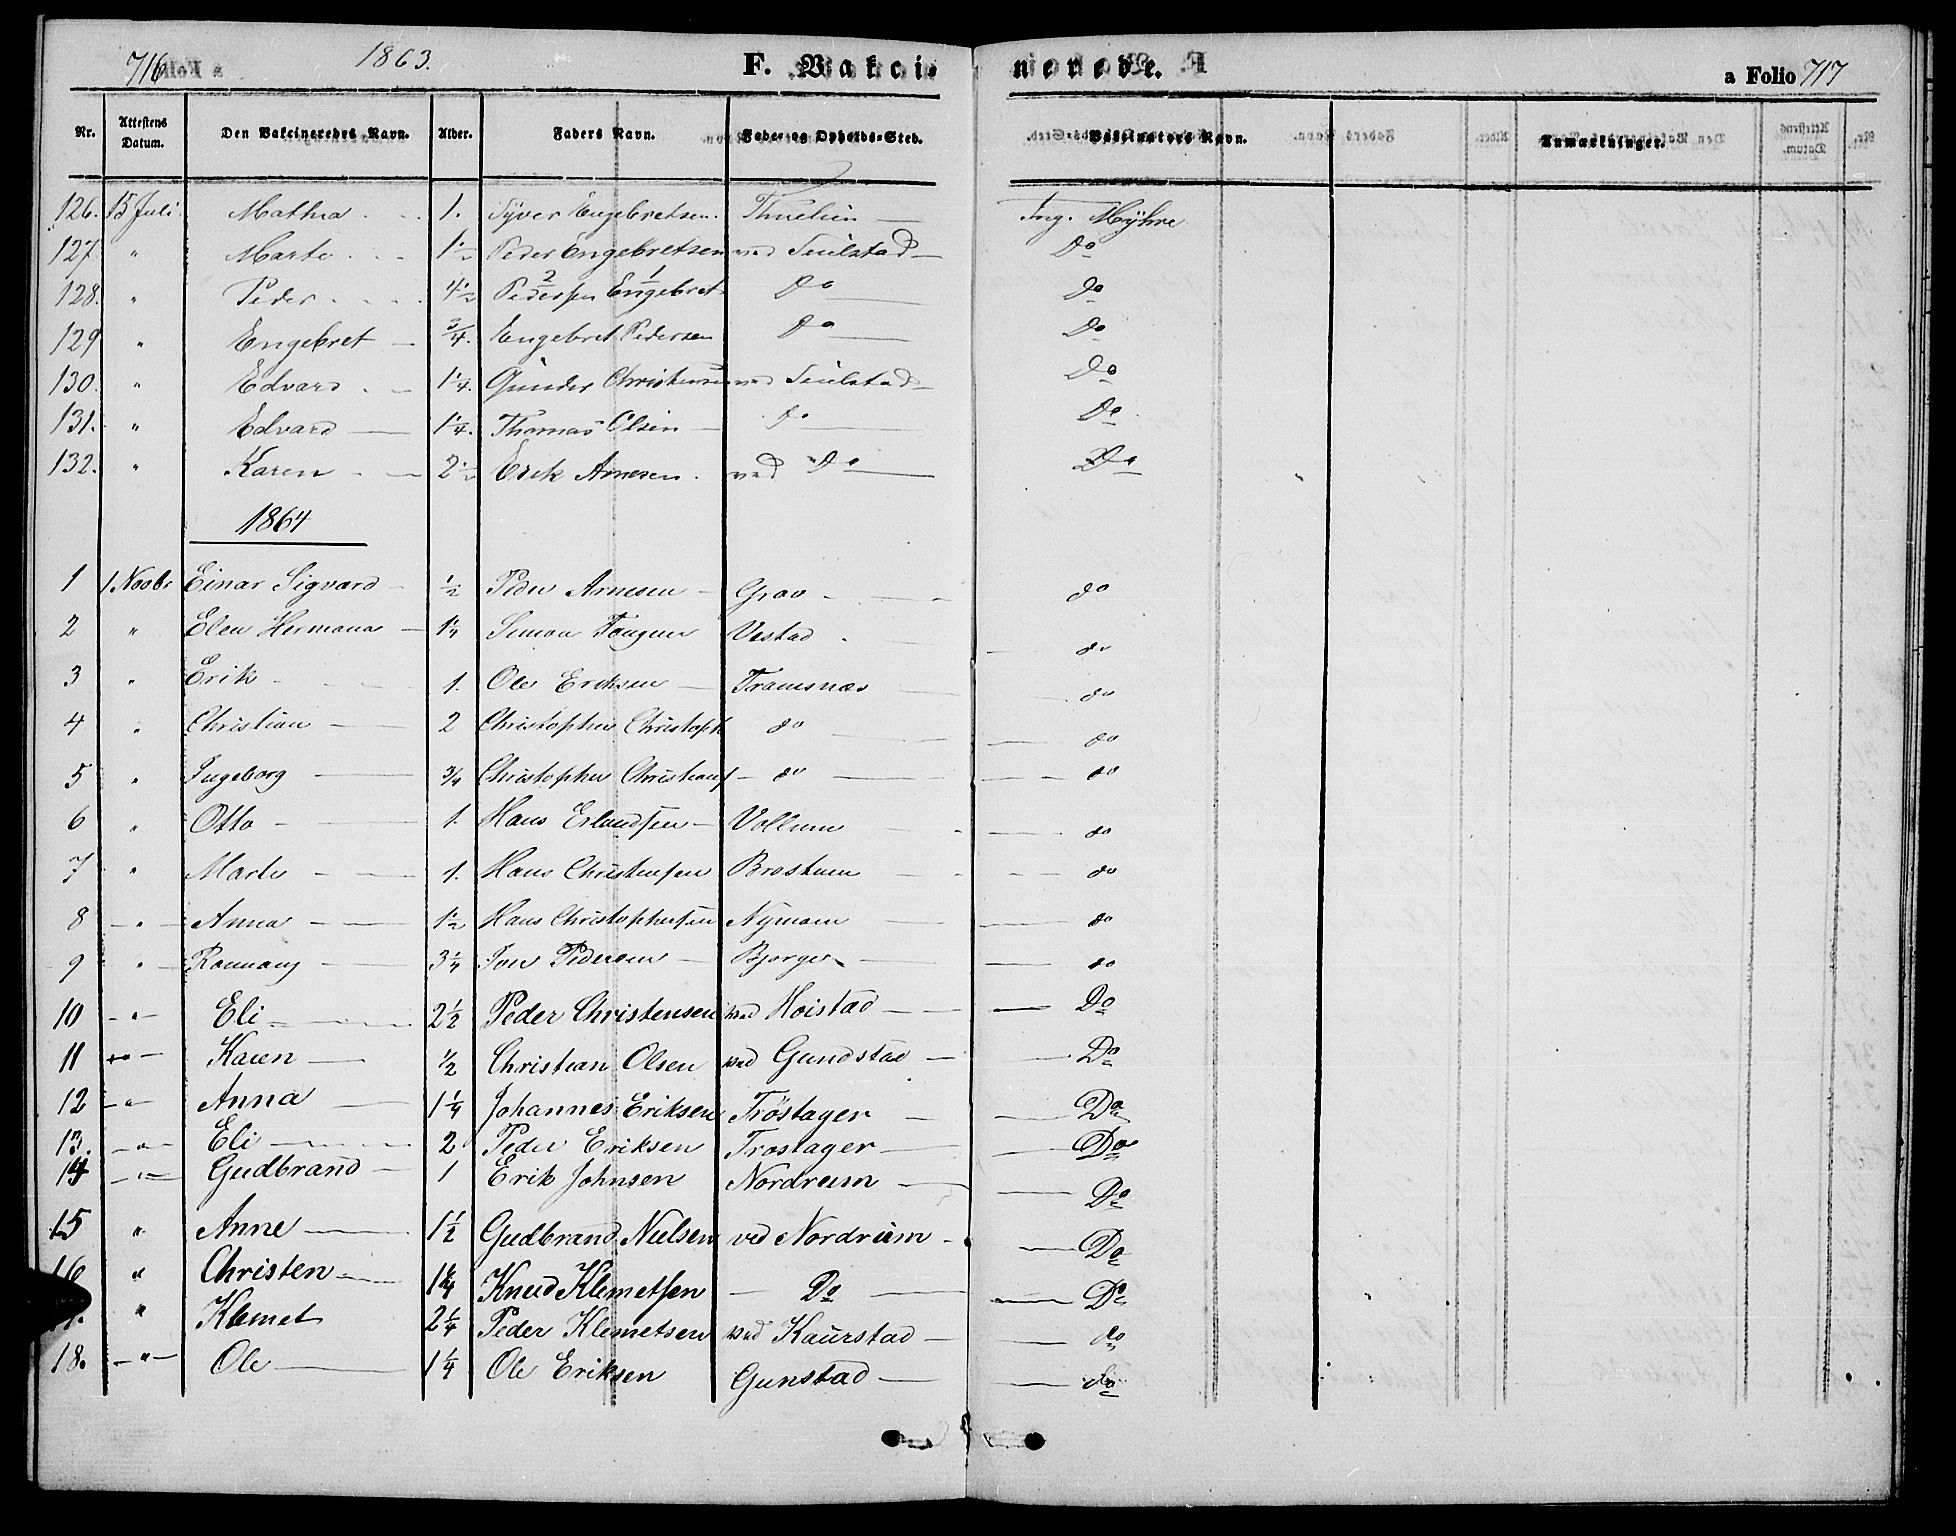 716 1863. F. Vakci- nerede. a Folio 717
Nr. Attestens Datum. Den Vakcineredes Navn. Alder. Faders Navn. Føde- og Opholds-Sted. Vakcinators Navn. Anmærkninger.
126. 15 Juli Mathea 1. Syver Engebretsen. Ing. Myhre
127. " Marte 1 1/2 Peder Engebretsen ved Do
128. " Peder 4 1/2 Pedersen 2 Engebret 1 Do Do
129 " Engebret 3/4. Engebret Pedersen Do Do
130. " Edvard 1 1/4. Gunder Christensen ved Do
131. " Edvard 1 1/4. Thomas Olsen do Do
132. " Karen 2 1/2 Erik Arnesen. ved Do Do
1864
1 1. Novbr Einar Sigvard 1/2 Peder Arnesen Grav do
2 " Elen Hermana 1 1/4 Simon Vestad do
3 " Erik 1. Ole Eriksen Tramsnæs do
4 " Christian 2 Christopher Christoph do do
5 " Ingeborg 3/4 Christopher Christians do do
6 " Otto 1. Hans Erlandsen Vollum do
7 " Marte 1. Hans Christensen Brostuen do
8 " Anna 1 1/2 Hans Christophersen Nymoen do
9 " 3 1/4 Iver Pedersen Bjørge do
10 " Eli 2 1/2 Peder Christensen ved Hoistad Do
11 " Karen 1/2 Christian Olsen ved Gundstad Do
12 " Anna 1 1/4 Johannes Eriksen Trøstager Do
13. " Eli 2 Peder Eriksen Trostager Do
14 " Gudbrand 1 Erik Johnsen Nordrum Do
15 " Anne 1 1/2 Gudbrand Nielsen ved Nordrum Do
16 " Christen 1 1/4 Knud Klemetsen Do Do
" Klemet 2 1/4 Peder Klemetsen ved Kaurstad do
18. " Ole 1 1/4 Ole Eriksen Gunstad do